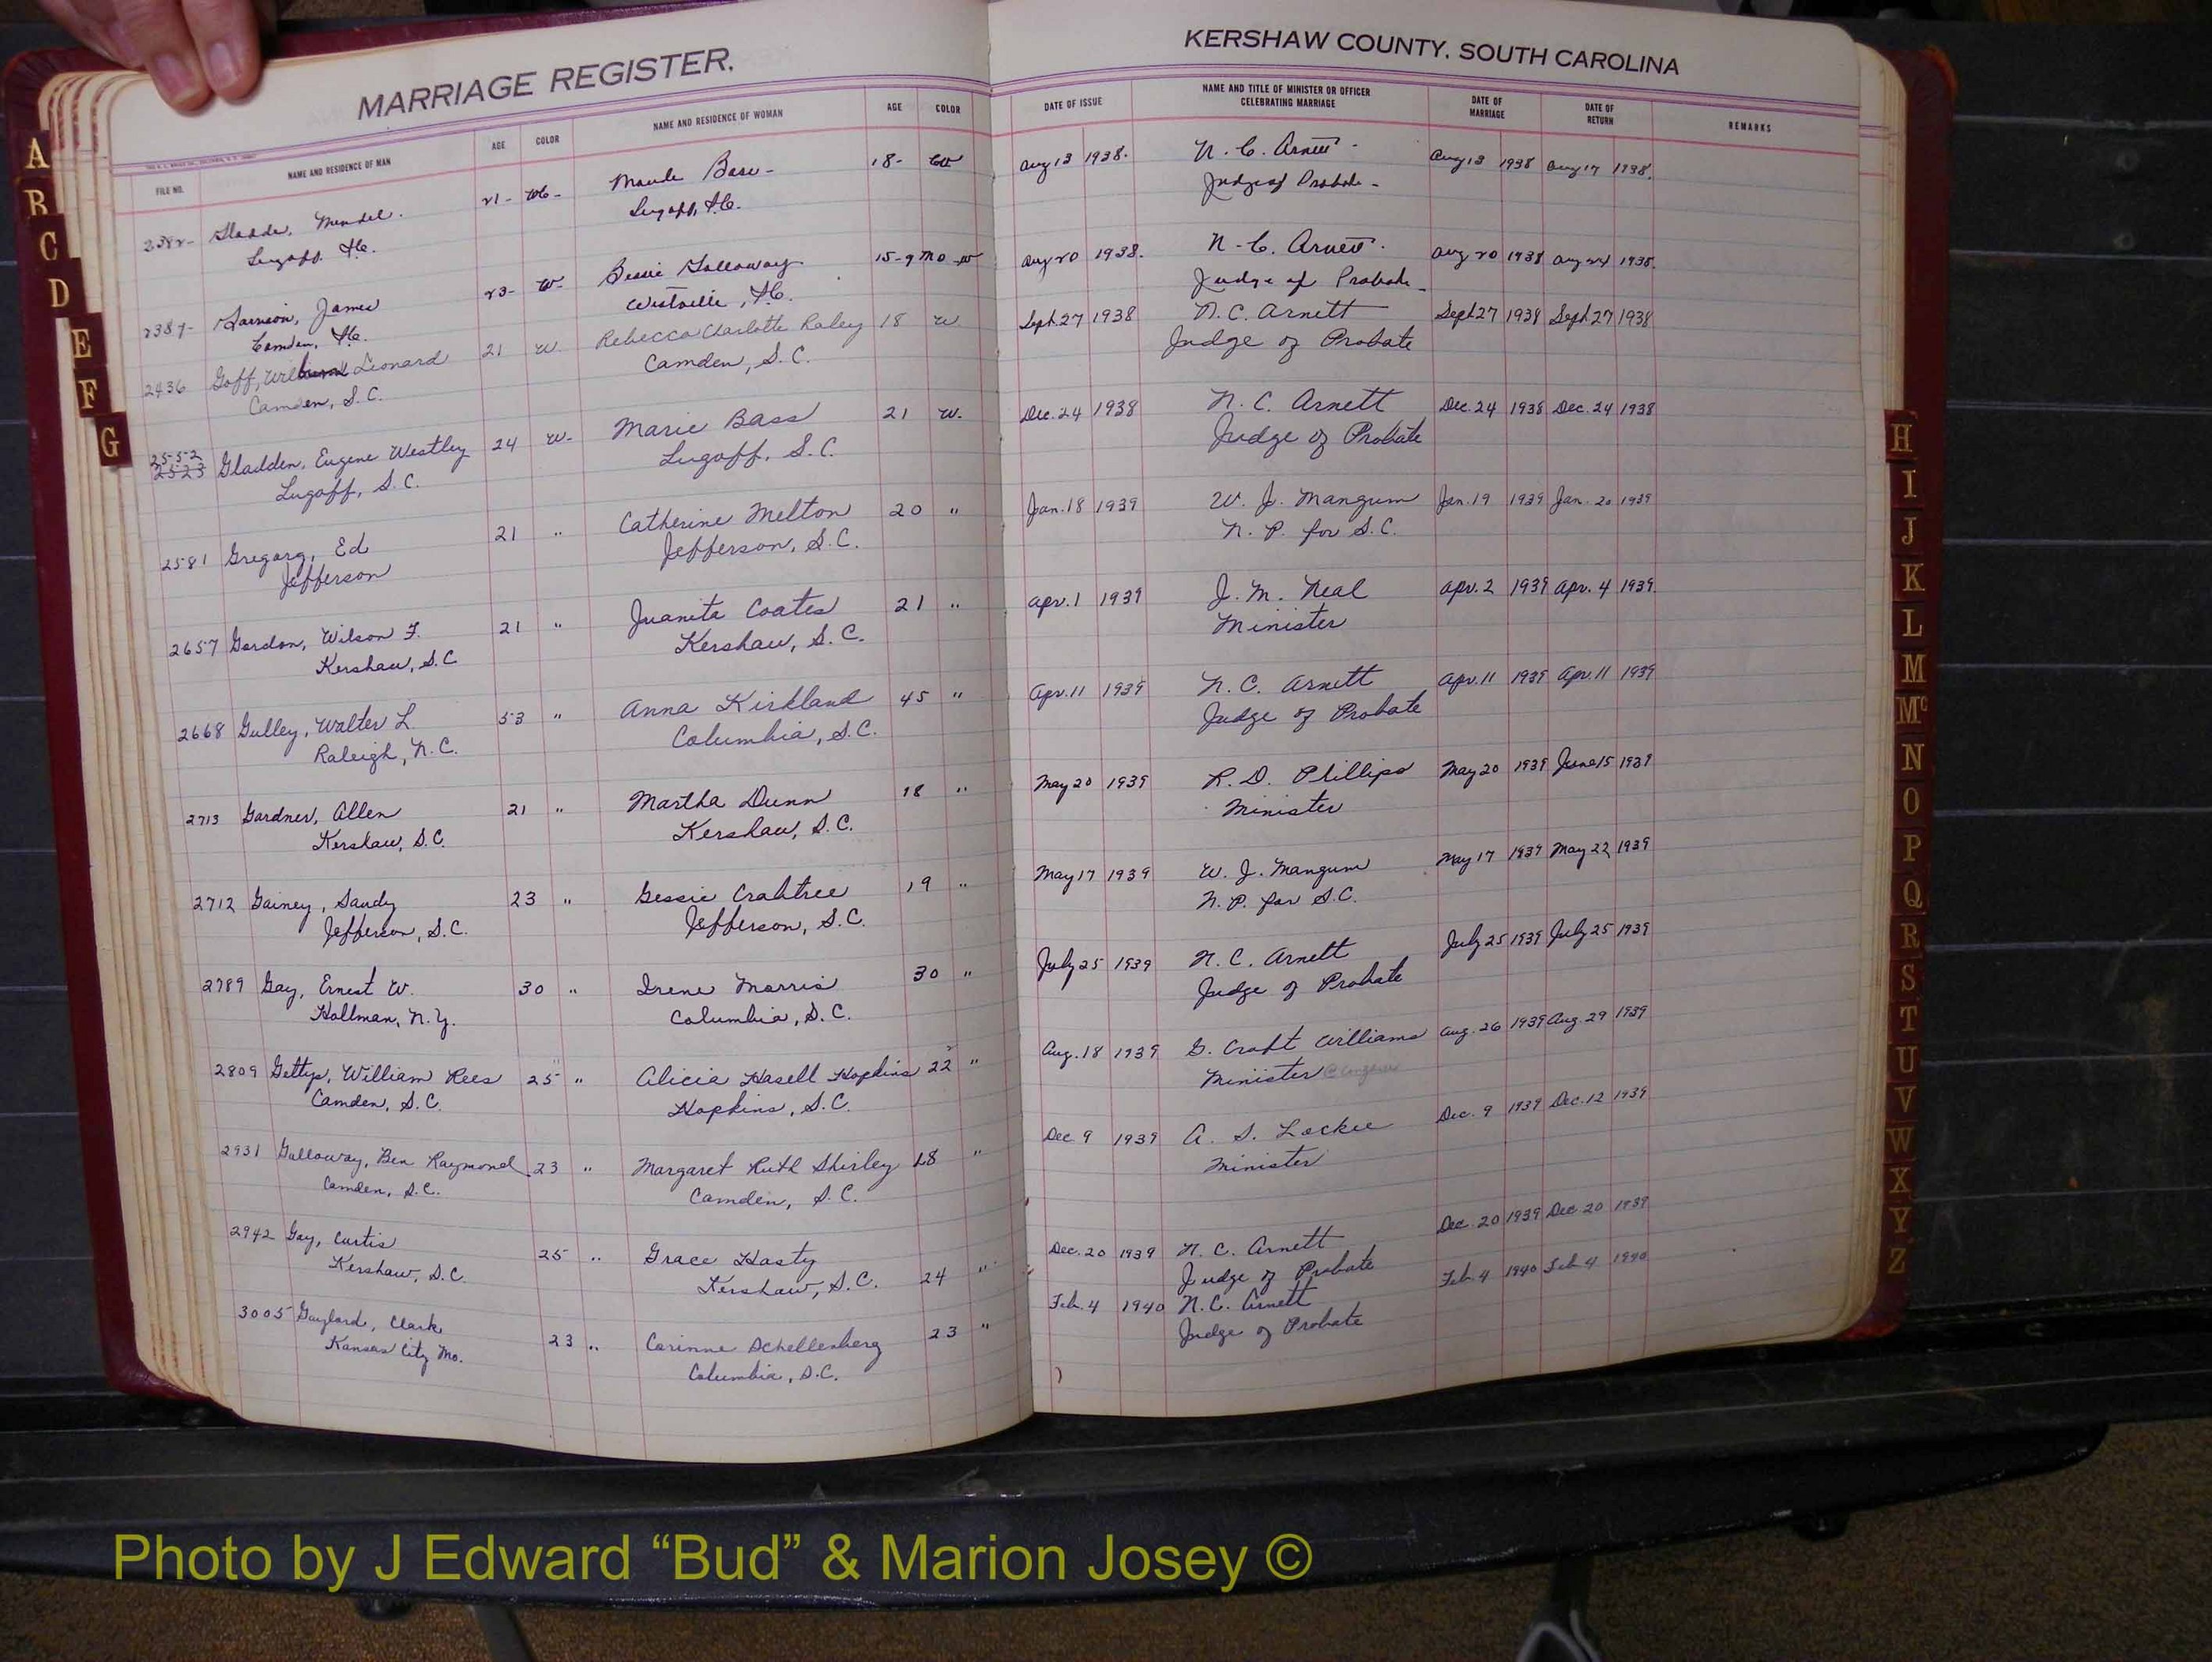 MARRIAGE REGISTER.
FILE NO. NAME AND RESIDENCE OF MAN AGE COLOR NAME AND RESIDENCE OF WOMAN AGE COLOR
Mendel 21- Maude 18-
Lugoff, S.C. Lugoff, S.C.
2387- James 23- W- Bessie Galloway 15-9 mo W
Camden, S.C. Westville, S.C.
2436 Goff, Leonard 21 W. Rebecca Charlotte Raley 18 W
Camden, S.C. Camden, S.C.
2552
2523 Gladden, Eugene Westley 24 W- Marie Bass 21 W.
Lugoff, S.C. Lugoff, S.C.
2581 Gregory, Ed 21 " Catherine Melton 20 "
Jefferson Jefferson, S.C.
2657 Gordon, Wilson F. 21 " Juanita Coates 21 "
Kershaw, S.C. Kershaw, S.C.
2668 Gulley, Walter L 53 " Anna Kirkland 45 "
Raleigh, N.C. Columbia, S.C.
2713 Gardner, Allen 21 " Martha Dunn 18 "
Kershaw, S.C. Kershaw, S.C.
2712 Gainey, Sandy 23 " Gessie Crabtree 19 "
Jefferson, S.C. Jefferson, S.C.
2789 Gay, Ernest W. 30 " Irene Morris 30 "
Hollman, N.Y. Columbia, S.C.
2809 Gettys, William Rees 25 " Alicia Hasell Hopkins 22 "
Camden, S.C. Hopkins, S.C.
2931 Galloway, Ben Raymond 23 " Margaret Ruth Shirley 18 "
Camden, S.C. Camden, S.C.
2942 Gay, Curtis 25 " Grace Hasty 24 "
Kershaw, S.C. Kershaw, S.C.
3005 Gaylord, Clark 23 " Corinne Schellenberg 23 "
Kansas City Mo. Columbia, S.C.
KERSHAW COUNTY, SOUTH CAROLINA
DATE OF ISSUE NAME AND TITLE OF MINISTER OR OFFICER CELEBRATING MARRIAGE DATE OF MARRIAGE DATE OF RETURN REMARKS
Aug 13 1938. N. C. Arnett - Aug 13 1938 Aug 17 1938.
Judge of Probate -
Aug 20 1938. N. C. Arnett. Aug 20 1938 Aug 24 1938.
Judge of Probate -
Sept. 27 1938 N. C. Arnett Sept 27 1938 Sept 27 1938
Judge of Probate
Dec. 24 1938 N. C. Arnett Dec. 24 1938 Dec. 24 1938
Judge of Probate
Jan. 18 1939 W. J. Mangum Jan. 19 1939 Jan. 20 1939
N. P. for S.C.
Apr. 1 1939 J. M. Neal Apr. 2 1939 Apr. 4 1939.
Minister
Apr. 11 1939 N. C. Arnett Apr. 11 1939 Apr. 11 1939
Judge of Probate
May 20 1939 R. D. Phillips May 20 1939 June 15 1939
Minister
May 17 1939 W. J. Mangum May 17 1939 May 22 1939
N. P. for S.C.
July 25 1939 N. C. Arnett July 25 1939 July 25 1939
Judge of Probate
Aug. 18 1939 G. Croft Williams Aug. 26 1939 Aug. 29 1939
Minister
Dec 9 1939 A. S. Lockee Dec. 9 1939 Dec. 12 1939
Minister
Dec. 20 1939 N. C. Arnett Dec. 20 1939 Dec 20 1939
Judge of Probate
Feb. 4 1940 N. C. Arnett Feb. 4 1940 Feb 4 1940
Judge of Probate
A
B
C
D
E
F
G
H
I
J
K
L
M
Mc
N
O
P
Q
R
S
T
U
V
W
X
Y
Z
Photo by J Edward “Bud” & Marion Josey ©